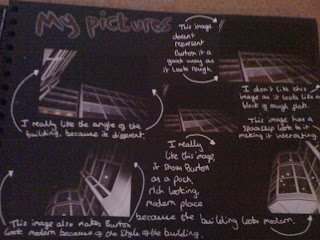 My pictures
This image
doesn't
represent
Burton it a
good way as
it looks rough
I really like the angle of the
building, because its different.
I don't like this
image as it looks like a
block of rough flats.
This image has a
spaceship look to it
making it interesting.
I really
like this image,
it shows Burton
as a posh,
rich looking,
modern place
because the building looks modern.
This image also makes Burton
look modern because of the style of the building.